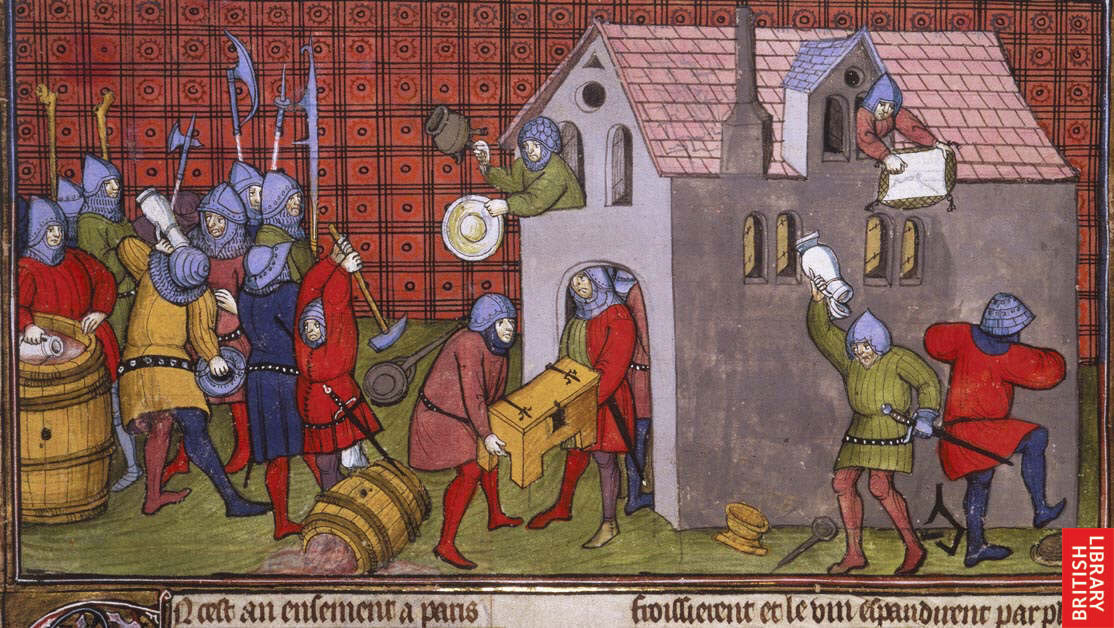 N cest an ensement a paris
froissierent et le vin espandirent par
BRITISH
LIBRARY